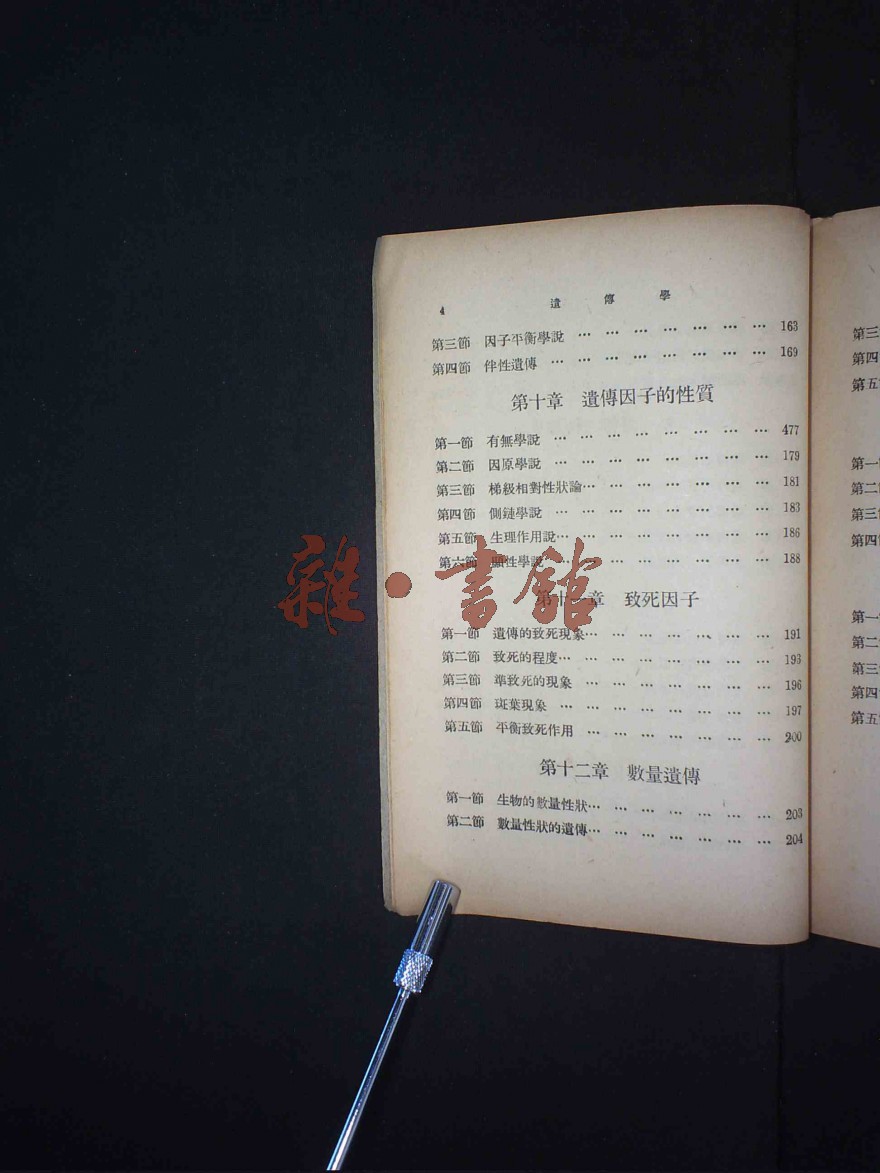 4 遺傳學
第三節 因子平衡學說 … … … … … … … 163
第四節 伴性遺傳 … … … … … … … … 169
第十章 遺傳因子的性質
第一節 有無學說 … … … … … … … … 477
第二節 因原學說 … … … … … … … … 179
第三節 梯級相對性狀論… … … … … … … 181
第四節 側鏈學說 … … … … … … … … 183
第五節 生理作用說… … … … … … … … 186
第六節 顯性學說… … … … … … … … 188
第十一章 致死因子
第一節 遺傳的致死現象… … … … … … … 191
第二節 致死的程度… … … … … … … … 193
第三節 準致死的現象 … … … … … … … 196
第四節 斑葉現象 … … … … … … … … 197
第五節 平衡致死作用 … … … … … … … 200
第十二章 數量遺傳
第一節 生物的數量性狀… … … … … … … 203
第二節 數量性狀的遺傳… … … … … … … 204
雜·書館
第三
第四
第五
第一
第二
第三
第四
第一
第二
第三
第四
第五